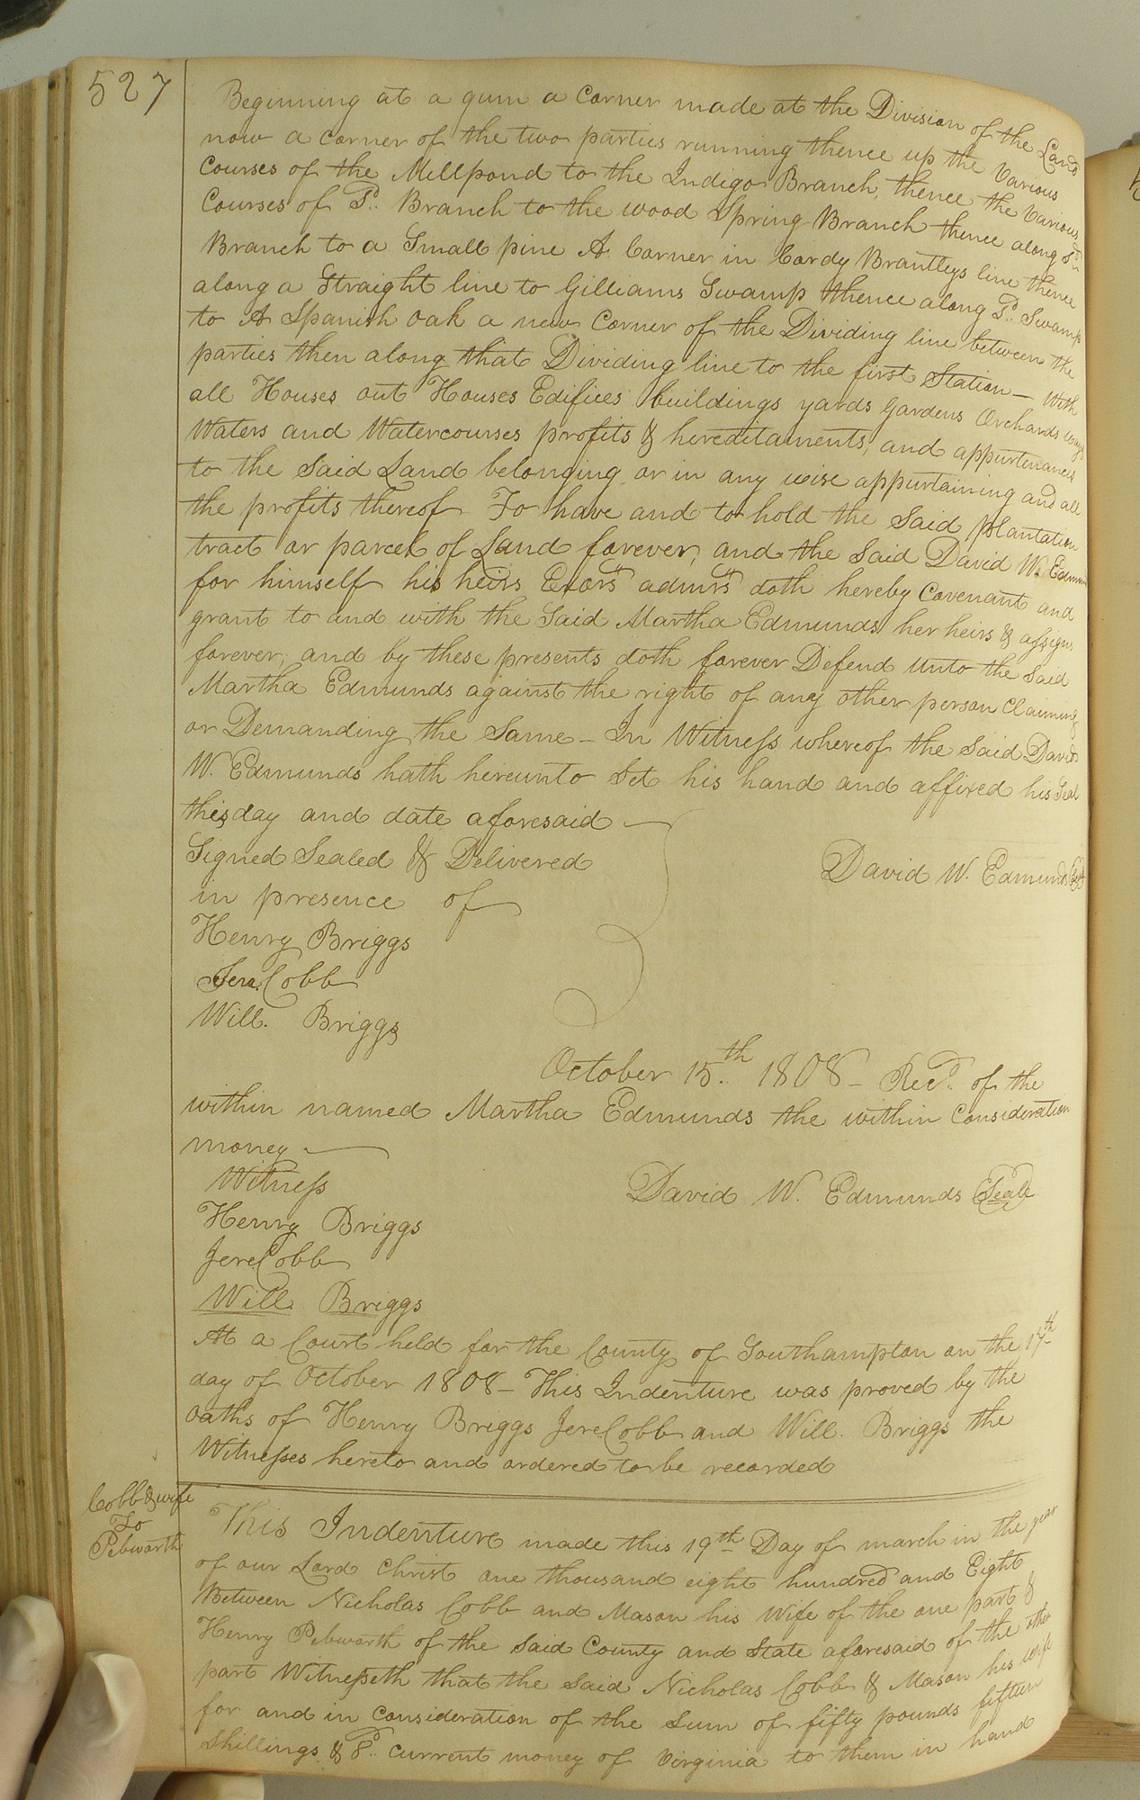 527
Beginning at a gum a Corner made at the Division of the Land
now a corner of the two parties running thence up the Various
Courses of the Millpond to the Indigo Branch, thence the Various
Courses of Sd. Branch to the wood Spring Branch thence along Sd.
Branch to a Small pine A Corner in Cordy Brantleys line thence
along a Straight line to Gilliams Swamp thence along Sd. Swamp
to A Spanish oak a new Corner of the Dividing line between the
parties then along that Dividing line to the first Station — With
all Houses out Houses Edifices buildings yards Gardens Orchards ways
Waters and Watercourses profits & hereditaments, and appurtenances
to the Said Land belonging or in any wise appurtaining and all
the profits thereof To have and to hold the Said plantation
tract or parcel of Land forever, and the Said David W. Edmun
for himself his heirs Exors admrs doth hereby Covenant and
grant to and with the Said Martha Edmunds her heirs & assigns
forever, and by these presents doth forever Defend Unto the Said
Martha Edmunds against the right of any other person Claiming
or Demanding the Same — In Witness whereof the Said David
W. Edmunds hath hereunto Set his hand and affixed his Seal
this day and date aforesaid —
Signed Sealed & Delivered
David W. Edmunds
in presence of
Henry Briggs
Jere. Cobb
Will. Briggs
October 15th 1808 — Recd. of the
within named Martha Edmunds the within Consideration
money —
Witness
David W. Edmunds Seale
Henry Briggs
Jere Cobb
Will Briggs
At a Court held for the County of Southampton on the 17th
day of October 1808 — This Indenture was proved by the
oaths of Henry Briggs Jere Cobb and Will. Briggs the
Witnesses hereto and ordered to be recorded
Cobb & wife
To
Pebworth
This Indenture made this 19th Day of march in the year
of our Lord Christ one thousand eight hundred and Eight
Between Nicholas Cobb and Mason his Wife of the one part &
Henry Pebworth of the Said County and State aforesaid of the other
part Witnesseth that the Said Nicholas Cobb & Mason his wife
for and in Consideration of the Sum of fifty pounds fifteen
Shillings & 8d. current money of Virginia to them in hand